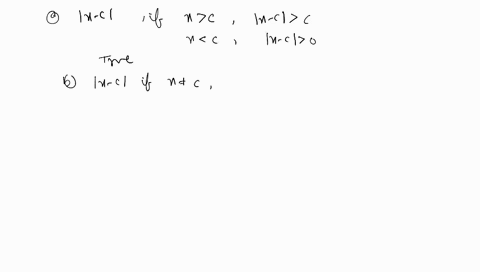 a) |x-c| , if x > c , |x-c| > c
x < c , |x-c| > 0
True
b) |x-c| if x ≠ c ,